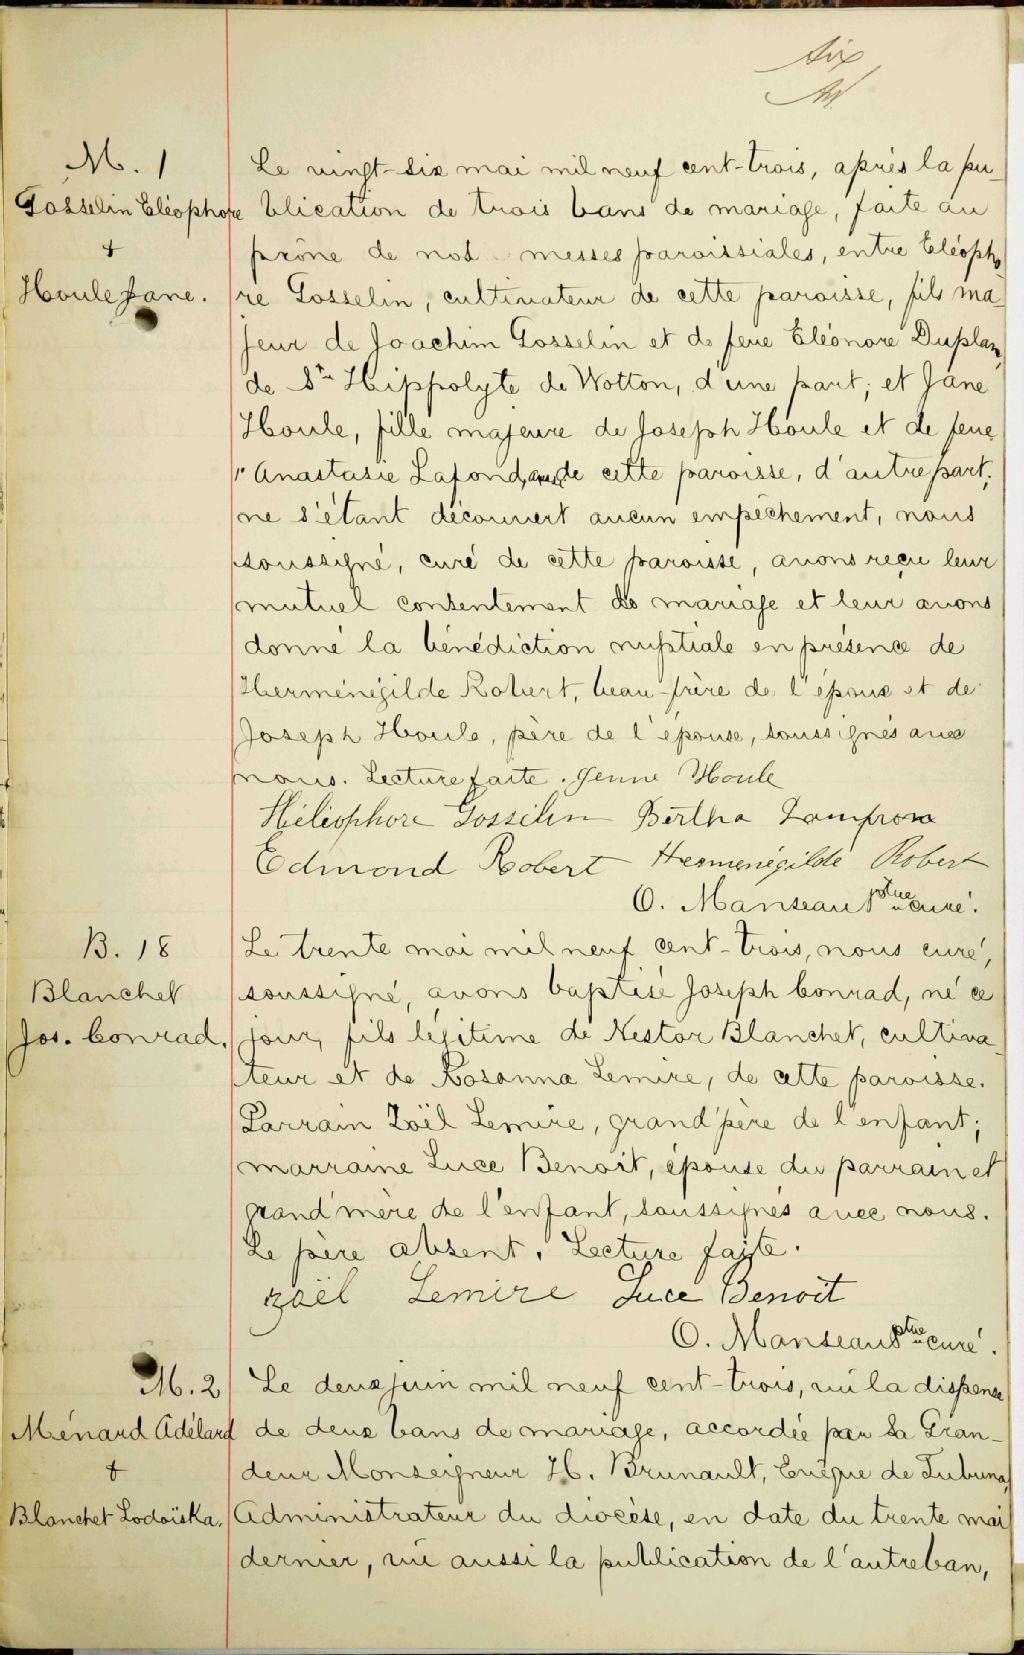 six
M. 1
Gosselin Eléophore
+
Houle Jane.
Le vingt-six mai mil neuf cent-trois, après la pu-
blication de trois bans de mariage, faite au
prône de nos messes paroissiales, entre Eléopho
re Gosselin, cultivateur de cette paroisse, fils ma-
jeur de Joachim Gosselin et de feue Eléonore Duplan,
de St Hippolyte de Wotton, d'une part; et Jane
Houle, fille majeure de Joseph Houle et de feue
Anastasie Lafond, de cette paroisse, d'autre part;
ne s'étant découvert aucun empêchement, nous
soussigné, curé de cette paroisse, avons reçu leur
mutuel consentement de mariage et leur avons
donné la bénédiction nuptiale en présence de
Herménégilde Robert, beau-frère de l'époux et de
Joseph Houle, père de l'épouse, soussignés avec
nous. Lecture faite. Jenne Houle
Héliophore Gosselin Bertha Lampron
Edmond Robert Hermenégilde Robert
O. Manseau Ptre curé.
B. 18
Blanchet
Jos. Conrad.
Le trente mai mil neuf cent-trois, nous curé,
soussigné, avons baptisé Joseph Conrad, né ce
jour, fils légitime de Nestor Blanchet, cultiva-
teur et de Rosanna Lemire, de cette paroisse.
Parrain Zoël Lemire, grand'père de l'enfant;
marraine Luce Benoit, épouse du parrain et
grand'mère de l'enfant, soussignés avec nous.
Le père absent. Lecture faite.
zoël Lemire Luce Benoît
O. Manseau Ptre curé.
M. 2
Ménard Adélard
+
Blanchet Lodoïska.
Le deux juin mil neuf cent-trois, vu la dispense
de deux bans de mariage, accordée par Sa Gran-
deur Monseigneur H. Brunault, Evêque de Tubuna,
Administrateur du diocèse, en date du trente mai
dernier, vu aussi la publication de l'autre ban,